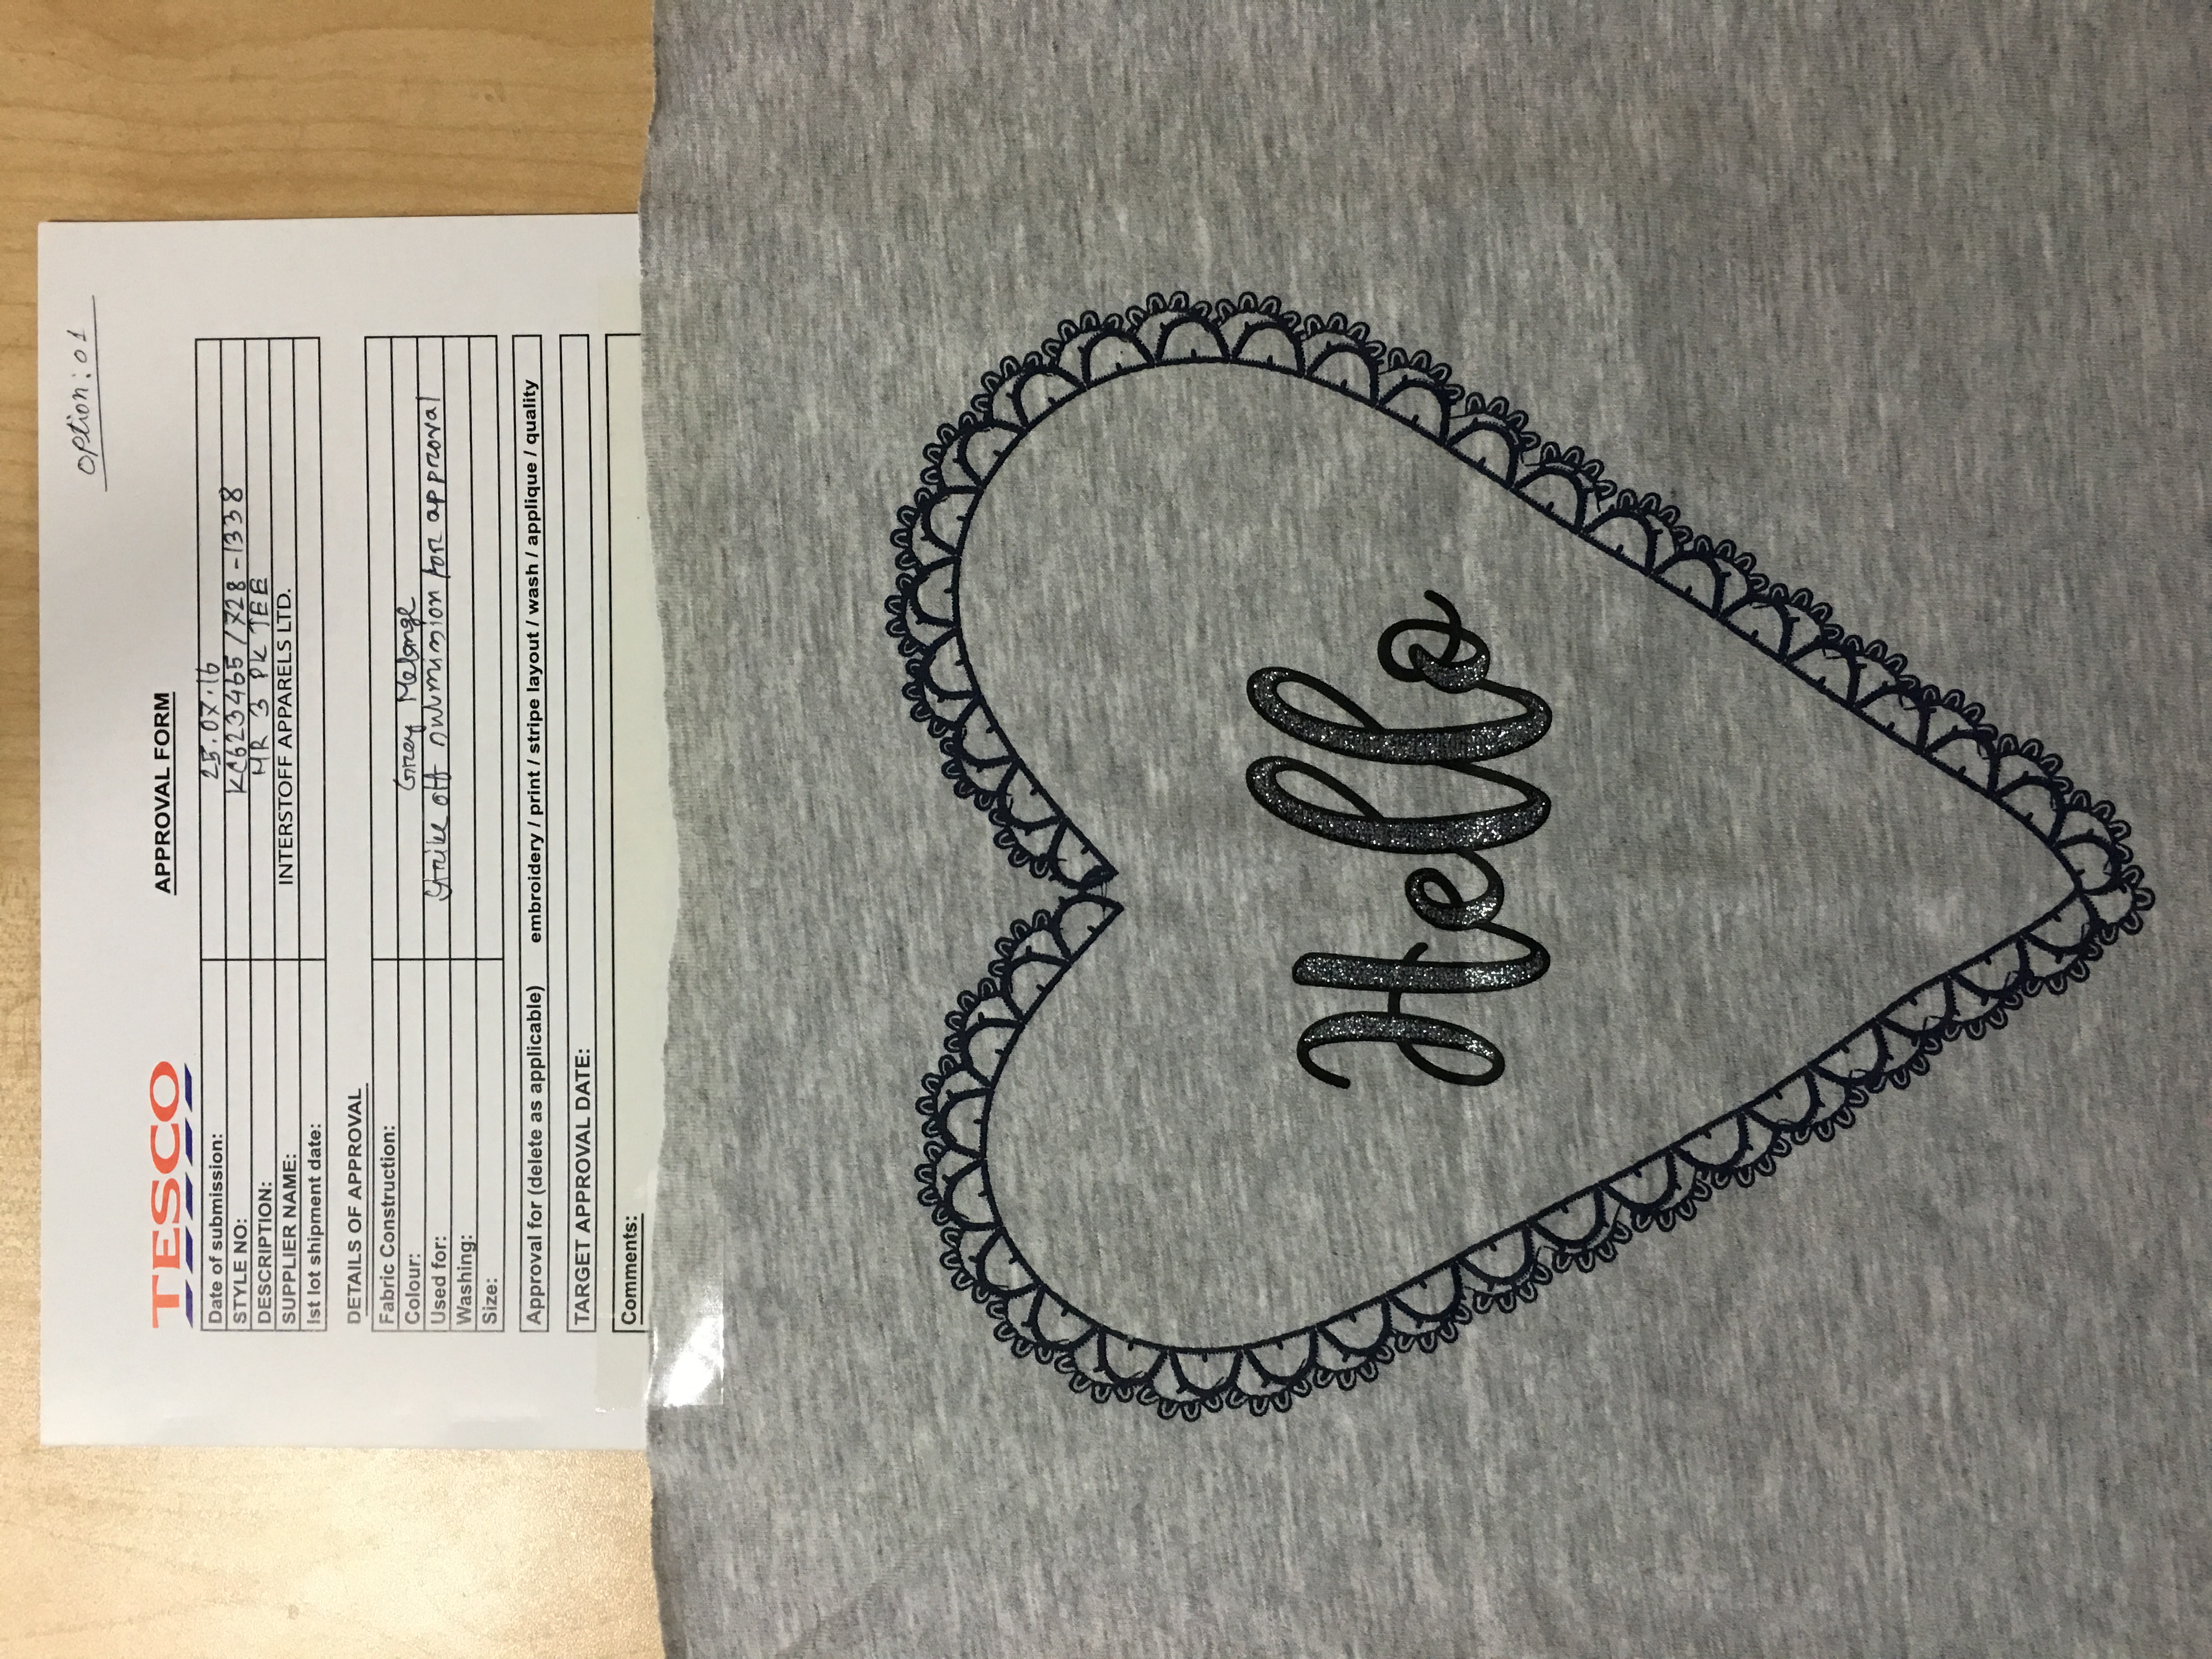 Option: 01
TESCO
APPROVAL FORM
Date of submission: 25.07.16
STYLE NO: KC623465 / 728-1338
DESCRIPTION: MR 3 PK TEE
SUPPLIER NAME: INTERSTOFF APPARELS LTD.
Ist lot shipment date:
DETAILS OF APPROVAL
Fabric Construction:
Colour: Grey Melange
Used for: Strike off submission for approval
Washing:
Size:
Approval for (delete as applicable) embroidery / print / stripe layout / wash / applique / quality
TARGET APPROVAL DATE:
Comments:
Hello